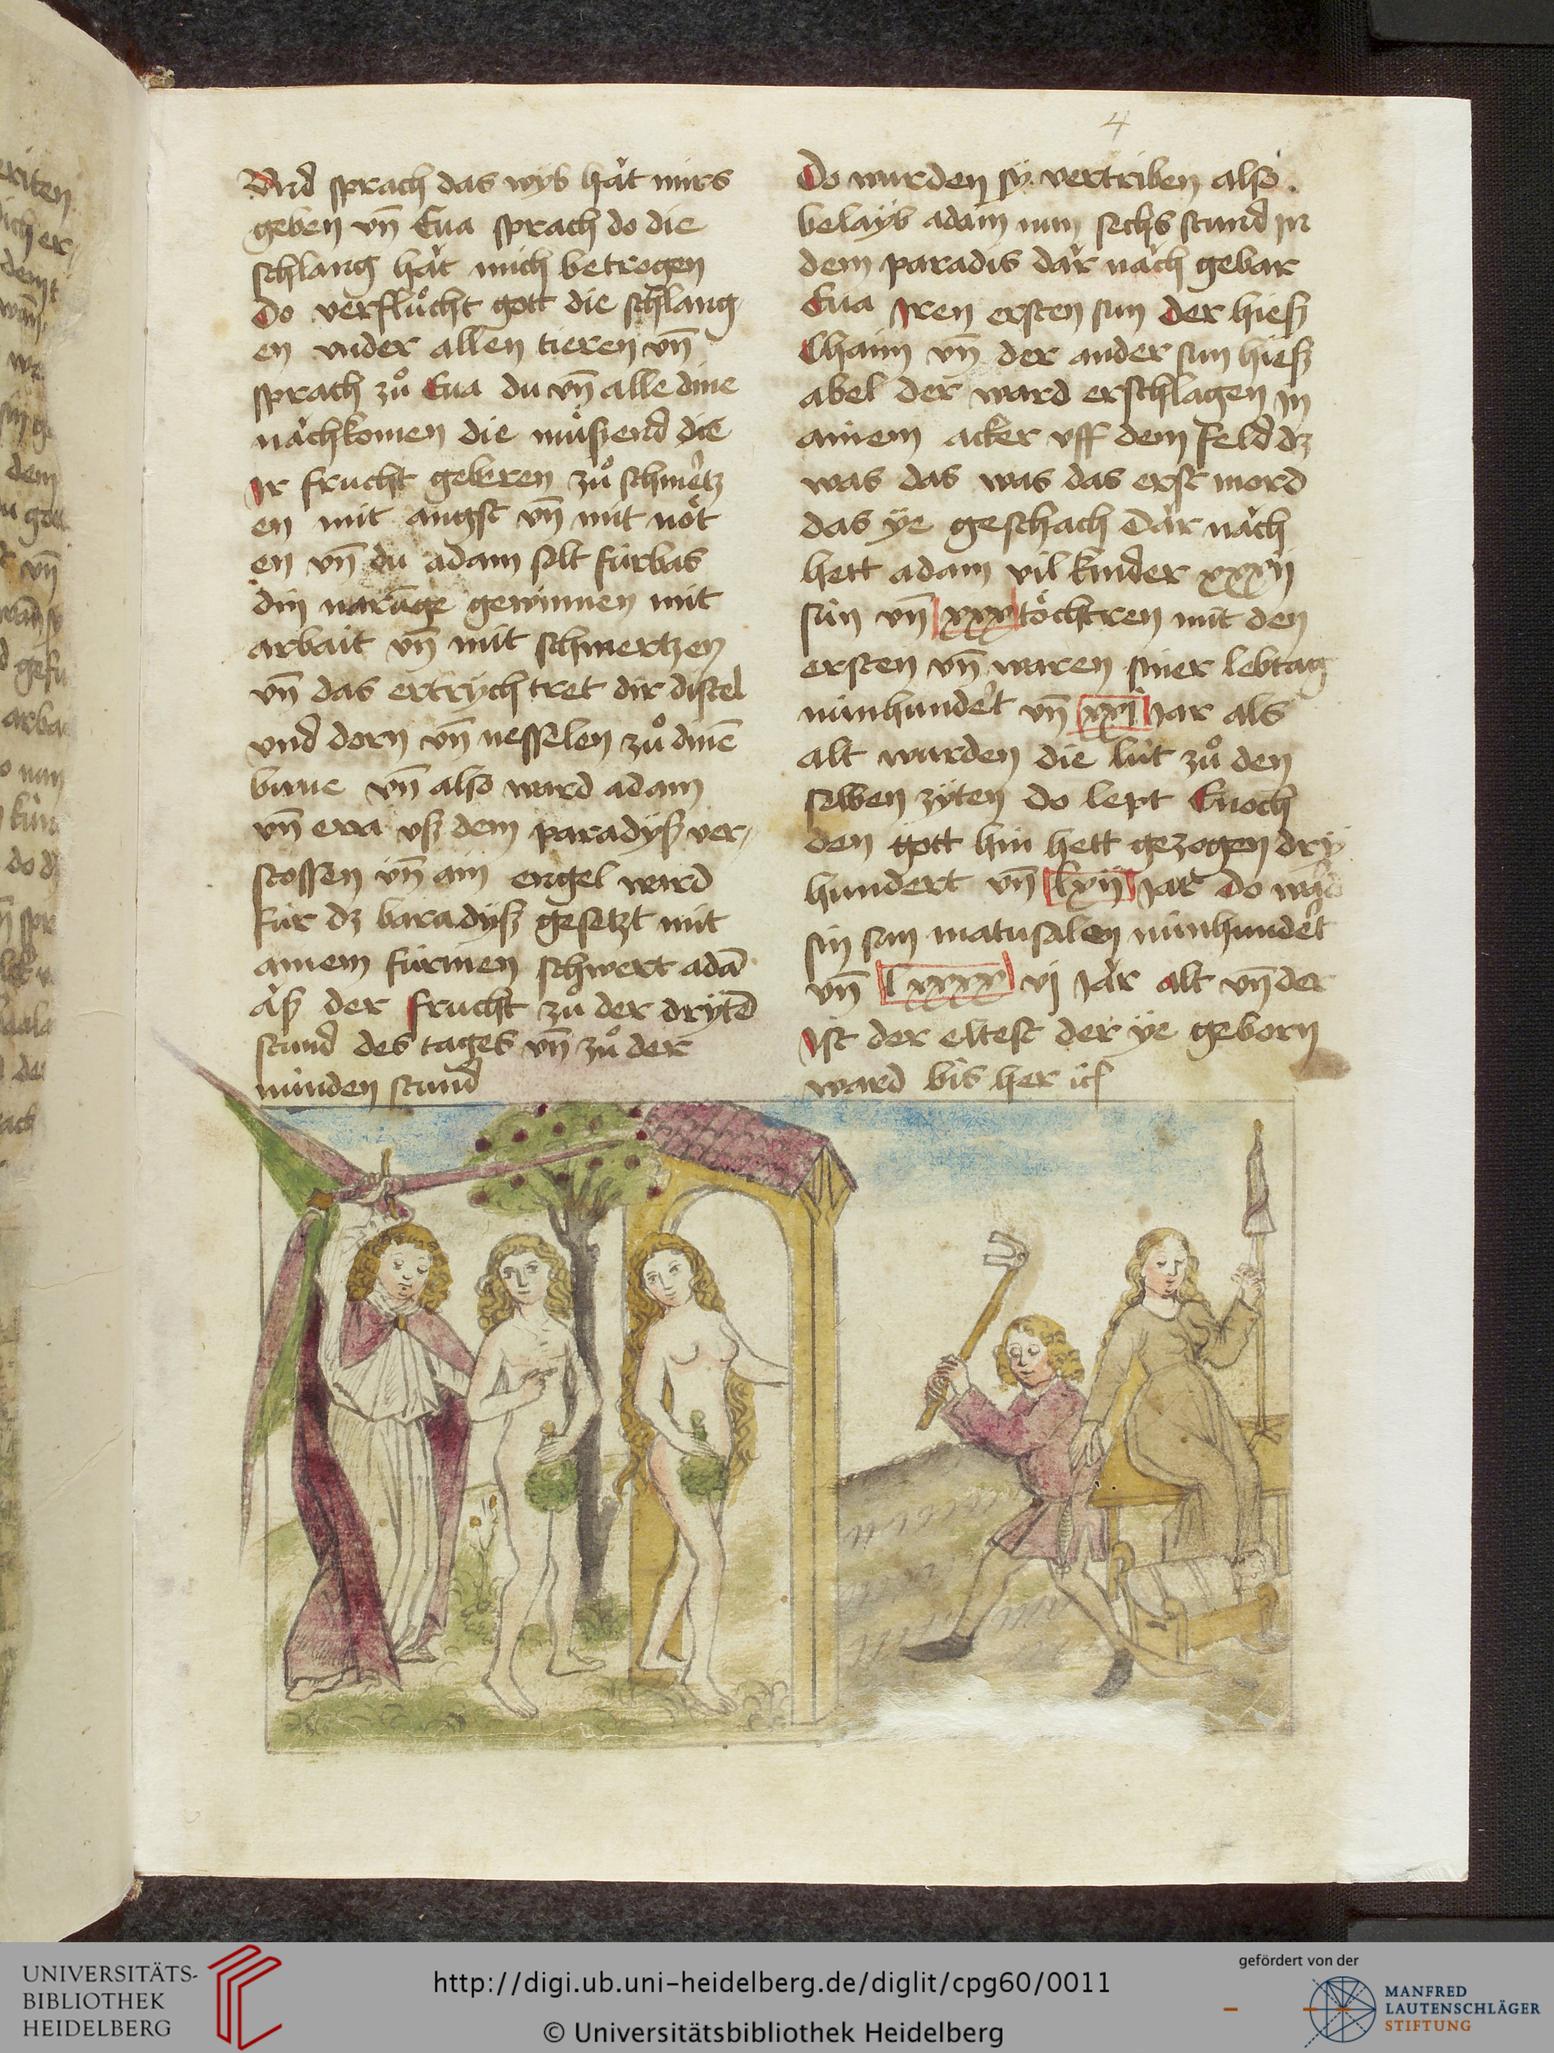 4
Vnd sprach das wyb hät mirs
geben vn̄ Eua sprach do die
schlang hät mich betrogen
Do verflůcht gott die schlang
en vnder allen tieren vn̄
sprach zů Eua du vn̄ alle dine
nächkomen die müssend die
Ir frucht geberen zů schmertz
en mit angst vn̄ mit nöt
en vn̄ du adam solt fürbas
din narūge gewinnen mit
arbait vn̄ mit schmertzen
vn̄ das ertrych tret dir distel
vnd dorn vn̄ nesselen zů dinē
buwe vn̄ also ward adam
vn̄ eva vß dem paradyß ver
stossen vn̄ ain engel ward
für dz baradyß gesetzt mit
ainem fürinen schwert adā
äß der frucht zů der dryttē
stund des tages vn̄ zů der
nünden stund
Do wurden sy vertriben also
belayb adam nun sechs stund in
dem paradis där näch gebar
Eua Iren ersten sun der hieß
Chaim vn̄ der ander sun hieß
abel der ward erschlagen in
ainem acker vff dem feld dz
was das was das erst mord
das ye geschach Där näch
hett adam vil kinder xxxij
sün vn̄ xxx töchtren mit den
ersten vn̄ waren siner lebtag
nünhundert vn̄ xxx Jar als
alt wurden die lüt zů den
selben zyten do lept Enoch
den gott hin hett gezogen dry
hundert vn̄ lxij Jar Do ward
sin sun matusalem nünhundert
vn̄ lxxxx vj Jär alt vn̄ der
Ist der eltest der ye geborn
ward bis her ist
UNIVERSITÄTS-
BIBLIOTHEK
HEIDELBERG
http://digi.ub.uni-heidelberg.de/diglit/cpg60/0011
© Universitätsbibliothek Heidelberg
gefördert von der
MANFRED
LAUTENSCHLÄGER
STIFTUNG